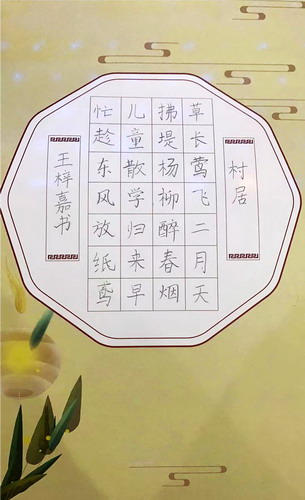 村居
草长莺飞二月天
拂堤杨柳醉春烟
儿童散学归来早
忙趁东风放纸鸢
王梓嘉书